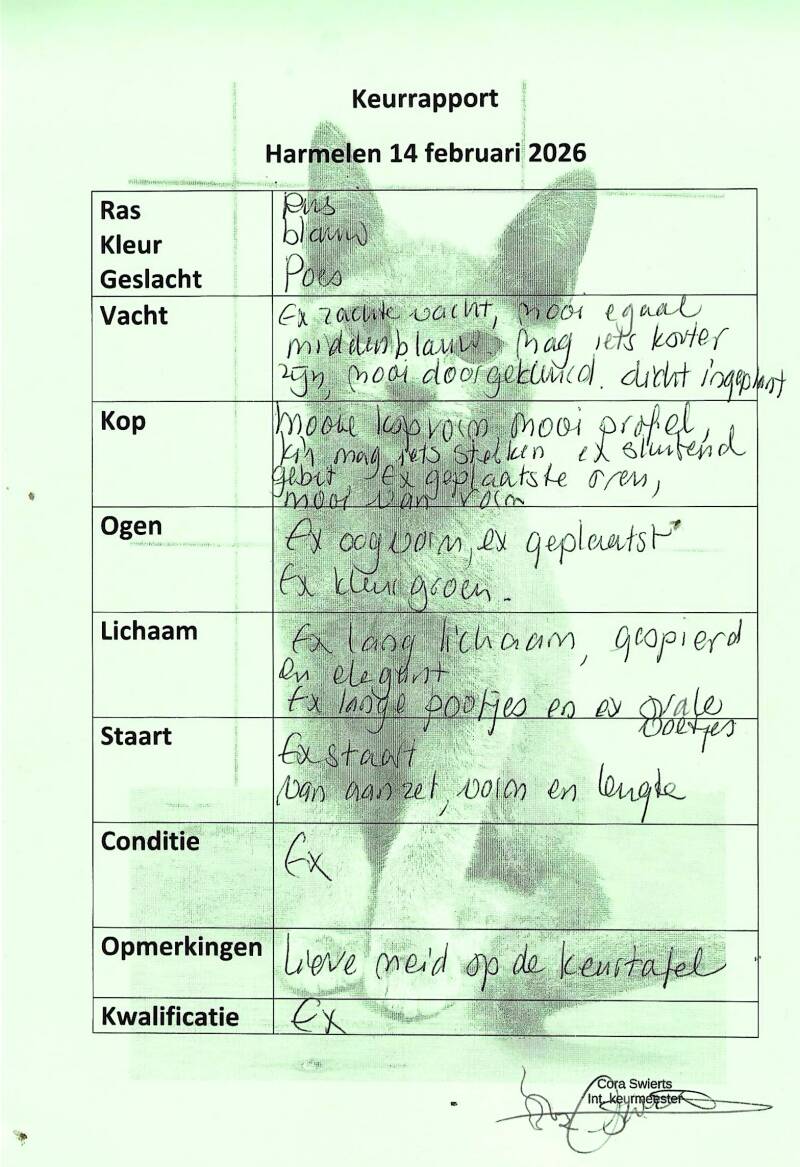 Keurrapport
Harmelen 14 februari 2026
Ras rus
Kleur blauw
Geslacht Poes
Vacht Ex zachte vacht, mooi egaal
middenblauw. Mag iets korter
zijn, mooi doorgekleurd. dicht ingeplant
Kop Mooie kopvorm mooi profiel,
kin mag iets sterker ex sluitend
gebit. Ex geplaatste oren,
mooi van vorm
Ogen Ex oogvorm, ex geplaatst
Ex kleur groen.
Lichaam Ex lang lichaam, gespierd
en elegant
Ex lange pootjes en ex ovale
voetjes
Staart Ex staart
van aanzet, vorm en lengte
Conditie Ex
Opmerkingen Lieve meid op de keurtafel
Kwalificatie Ex
Cora Swierts
Int. keurmeester